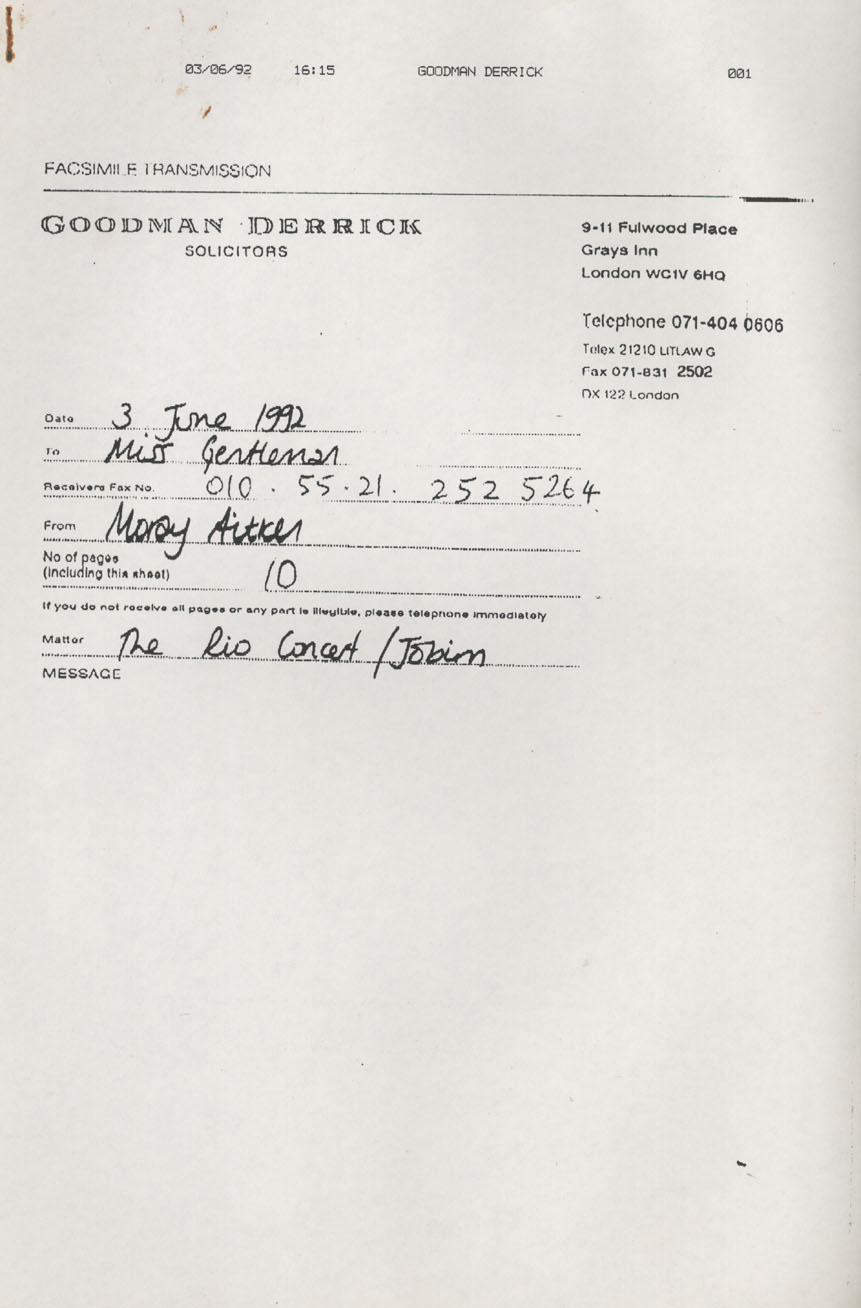 03/06/92 16:15 GOODMAN DERRICK 001
FACSIMILE TRANSMISSION
GOODMAN DERRICK
SOLICITORS
9-11 Fulwood Place
Grays Inn
London WC1V 6HQ
Telephone 071-404 0606
Telex 21210 LITLAW G
Fax 071-831 2502
DX 122 London
Date 3 June 1992
To Miss Gentleman
Receivers Fax No. 010 . 55 . 21 . 252 5264
From Aitken
No of pages
(including this sheet) 10
If you do not receive all pages or any part is illegible, please telephone immediately
Matter The Rio Concert / Jobim
MESSAGE